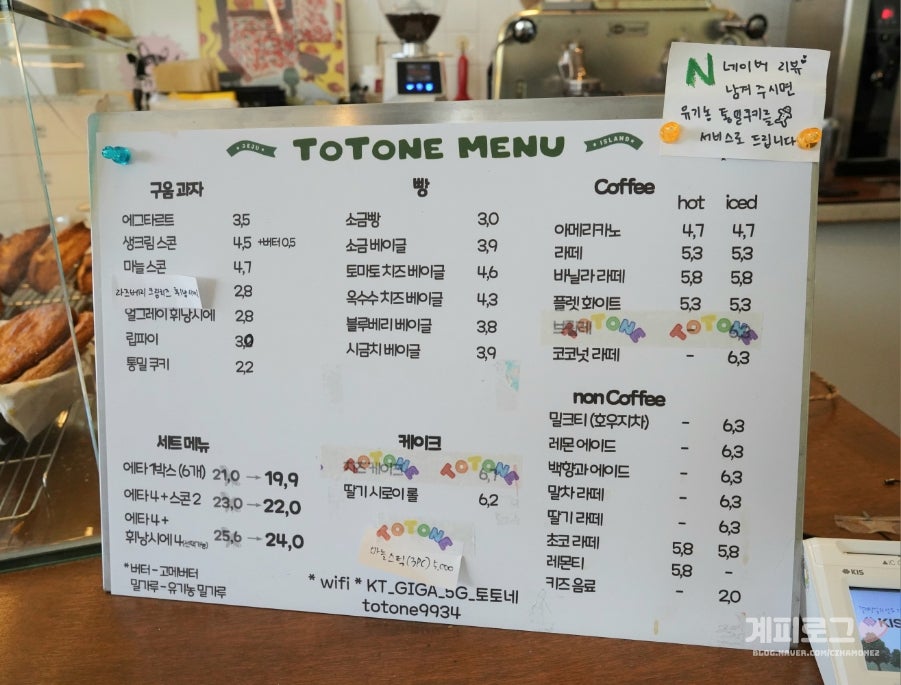 N 네이버 리뷰
남겨 주시면
유기농 통밀쿠키를
서비스로 드립니다
JEJU TOTONE MENU ISLAND
구움 과자
에그타르트 3,5
생크림 스콘 4,5 +버터 0,5
마늘 스콘 4,7
라즈베리 크림치즈 휘낭시에 2,8
얼그레이 휘낭시에 2,8
립파이 3,0
통밀 쿠키 2,2
세트 메뉴
에타 1박스 (6개) 21,0 → 19,9
에타 4 + 스콘 2 23,0 → 22,0
에타 4 +
휘낭시에 4(선택가능) 25,6 → 24,0
* 버터 - 고메버터
밀가루 - 유기농 밀가루
빵
소금빵 3,0
소금 베이글 3,9
토마토 치즈 베이글 4,6
옥수수 치즈 베이글 4,3
블루베리 베이글 3,8
시금치 베이글 3,9
케이크
치즈 케이크 6,7
TOTONE TOTONE
딸기 시로이 롤 6,2
TOTONE
마늘스틱 (3PC) 5,000
* wifi * KT_GIGA_5G_토토네
totone9934
Coffee
hot iced
아메리카노 4,7 4,7
라떼 5,3 5,3
바닐라 라떼 5,8 5,8
플렛 화이트 5,3 5,3
TOTONE TOTONE
코코넛 라떼 - 6,3
non Coffee
밀크티 (호우지차) - 6,3
레몬 에이드 - 6,3
백향과 에이드 - 6,3
말차 라떼 - 6,3
딸기 라떼 - 6,3
초코 라떼 5,8 5,8
레몬티 5,8 -
키즈 음료 - 2,0
KIS
KIS
계피로그
BLOG.NAVER.COM/CZHAMONEZ